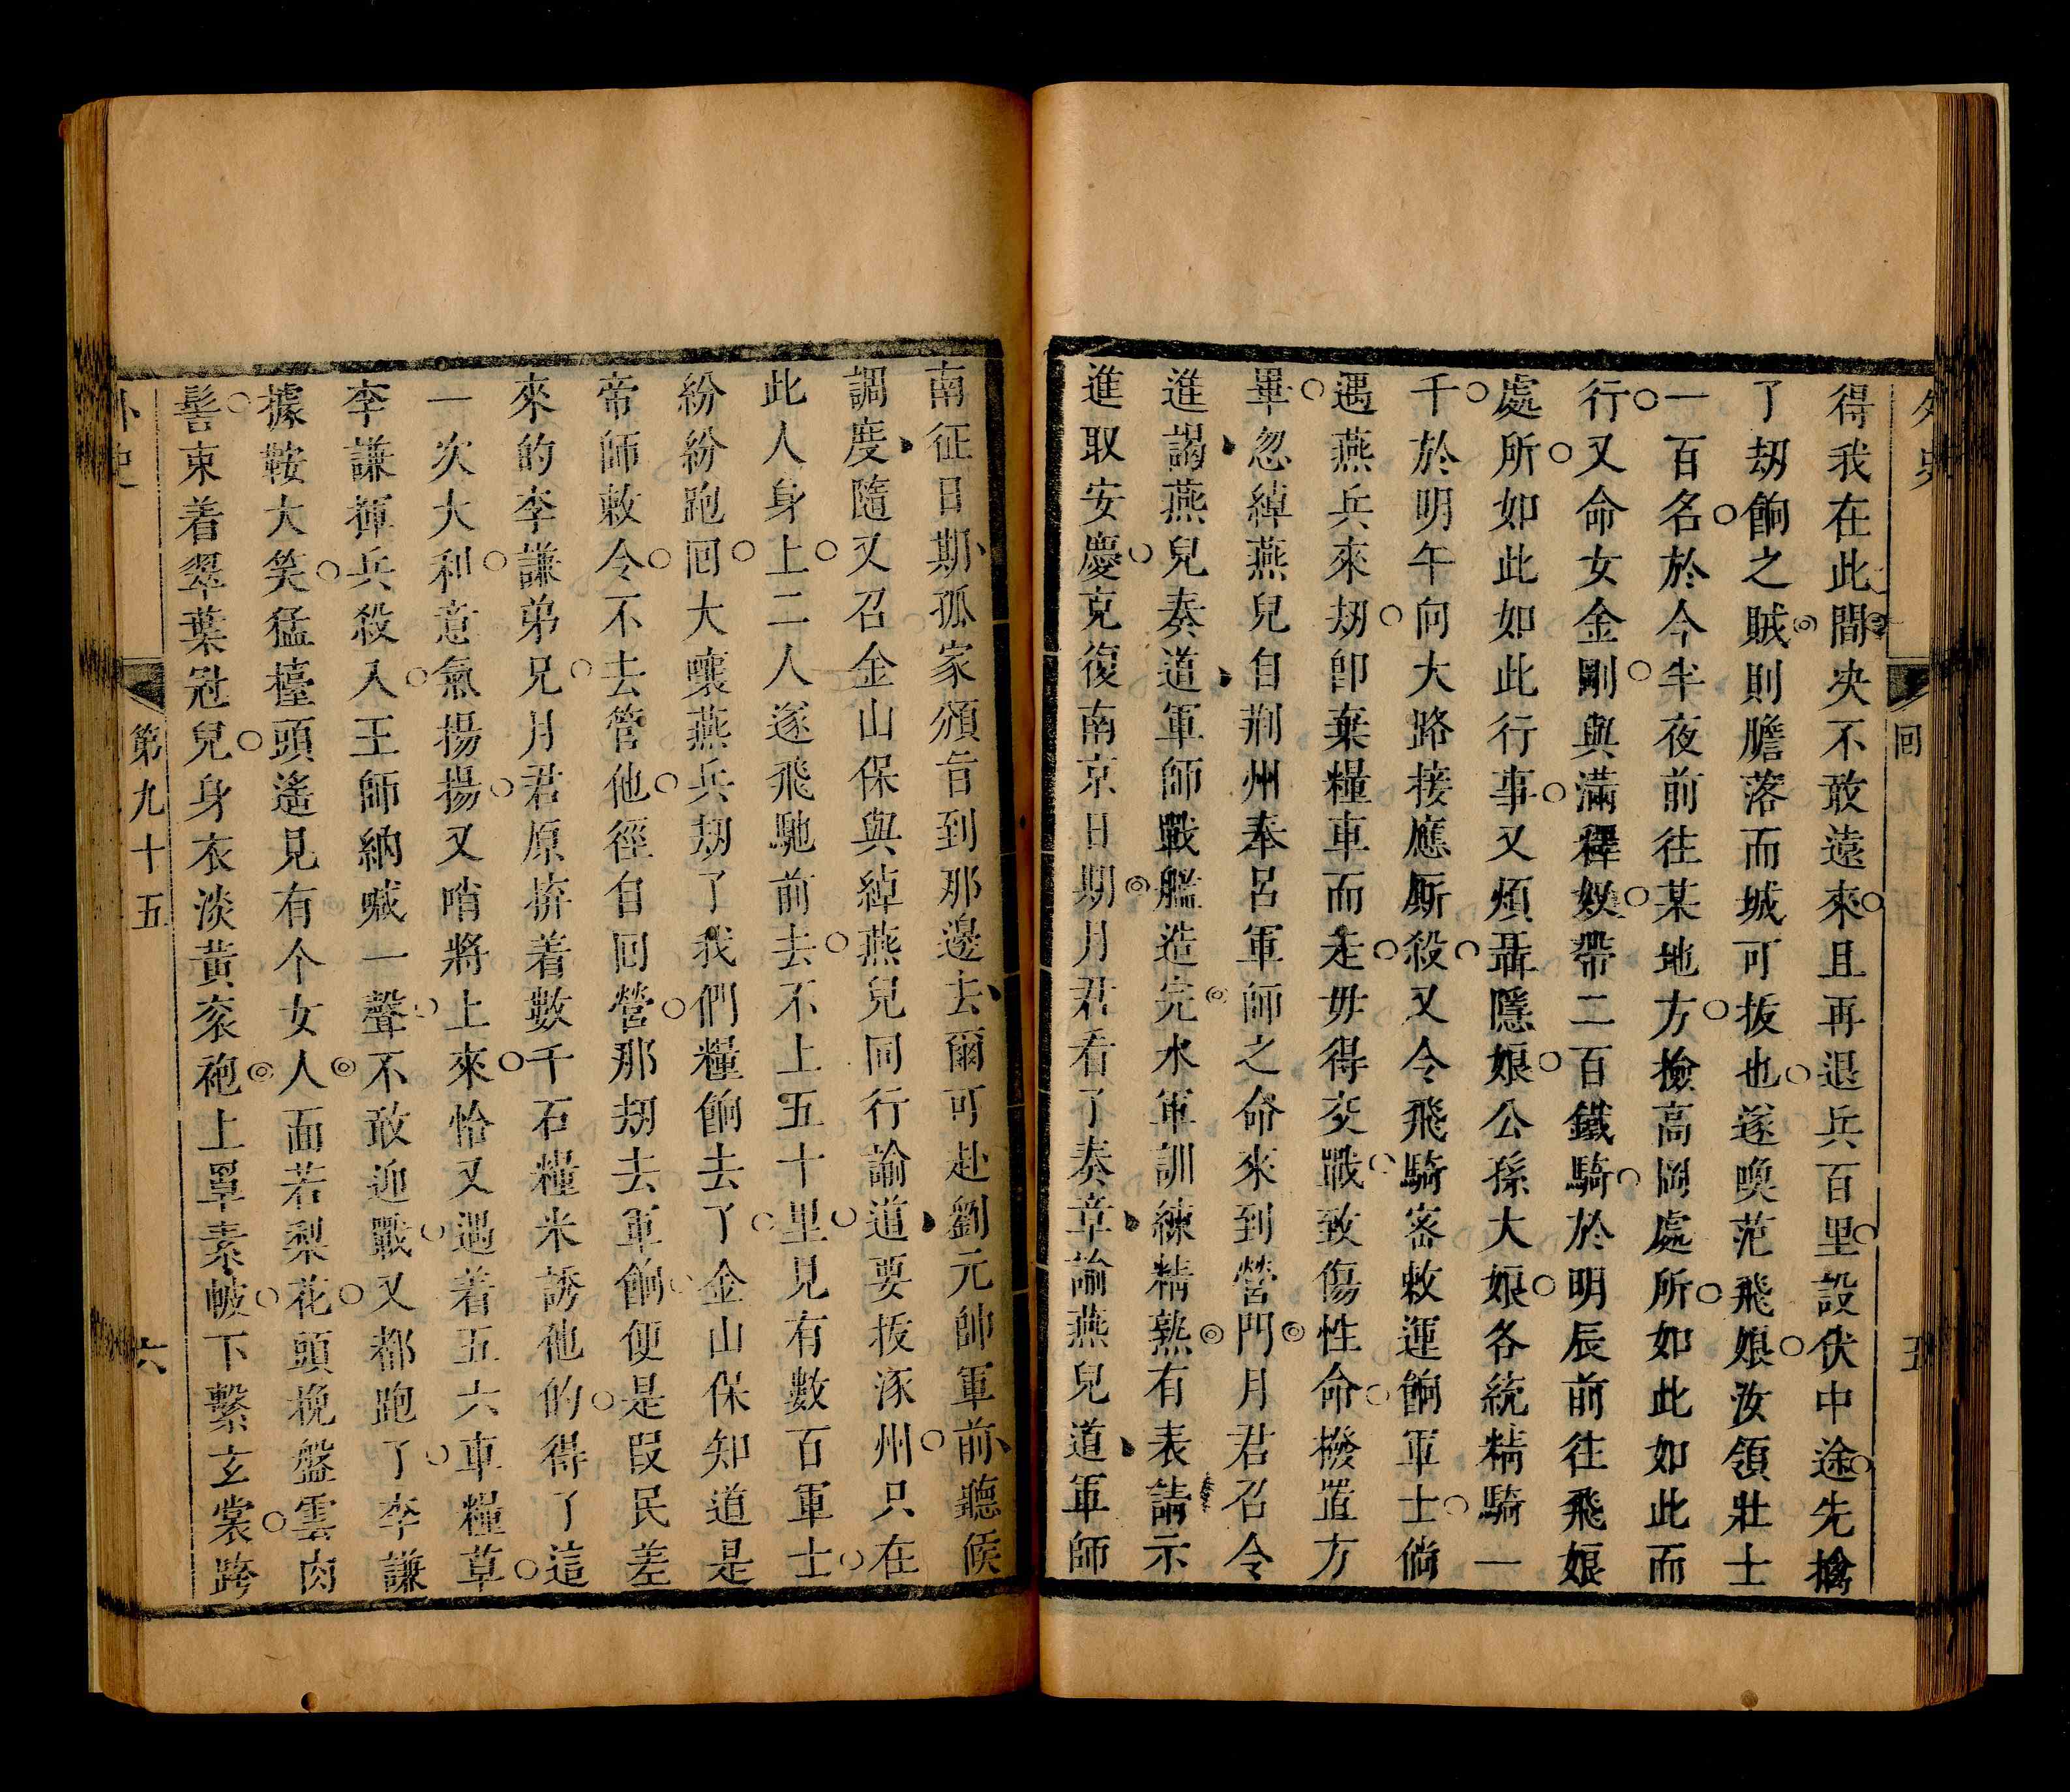 外史
回
五
得我在此間决不敢遠來且再退兵百里設伏中途先擒
了刼餉之賊則膽落而城可拔也遂喚范飛娘汝領壯士
一百名於今半夜前往某地方撿高岡處所如此如此而
行又命女金剛與滿釋奴帶二百鐵騎於明辰前往飛娘
處所如此如此行事又煩聶隱娘公孫大娘各統精騎一
千於明午向大路接應厮殺又令飛騎密敕運餉軍士倘
遇燕兵來刼卽棄糧車而走毋得交戰致傷性命撥置方
畢忽綽燕兒自荆州奉呂軍師之命來到營門月君召令
進謁燕兒奏道軍師戰艦造完水軍訓練精熟有表請示
進取安慶克復南京日期月君看了奏章諭燕兒道軍師
南征日期孤家頒旨到那邊去爾可赴劉元帥軍前聽候
調度隨又召金山保與綽燕兒同行諭道要拔涿州只在
此人身上二人遂飛馳前去不上五十里見有數百軍士
紛紛跑回大嚷燕兵刼了我們糧餉去了金山保知道是
帝師敕令不去管他徑自回營那刼去軍餉便是叚民差
來的李謙弟兄月君原拚着數千石糧米誘他的得了這
一次大利意氣揚揚又哨將上來恰又遇着五六車糧草
李謙揮兵殺入王師納喊一聲不敢迎戰又都跑了李謙
據鞍大笑猛擡頭遙見有个女人面若梨花頭挽盤雲肉
髻束着翠葉冠兒身衣淡黃衮袍上罩素帔下繫玄裳跨
外史
第九十五
六